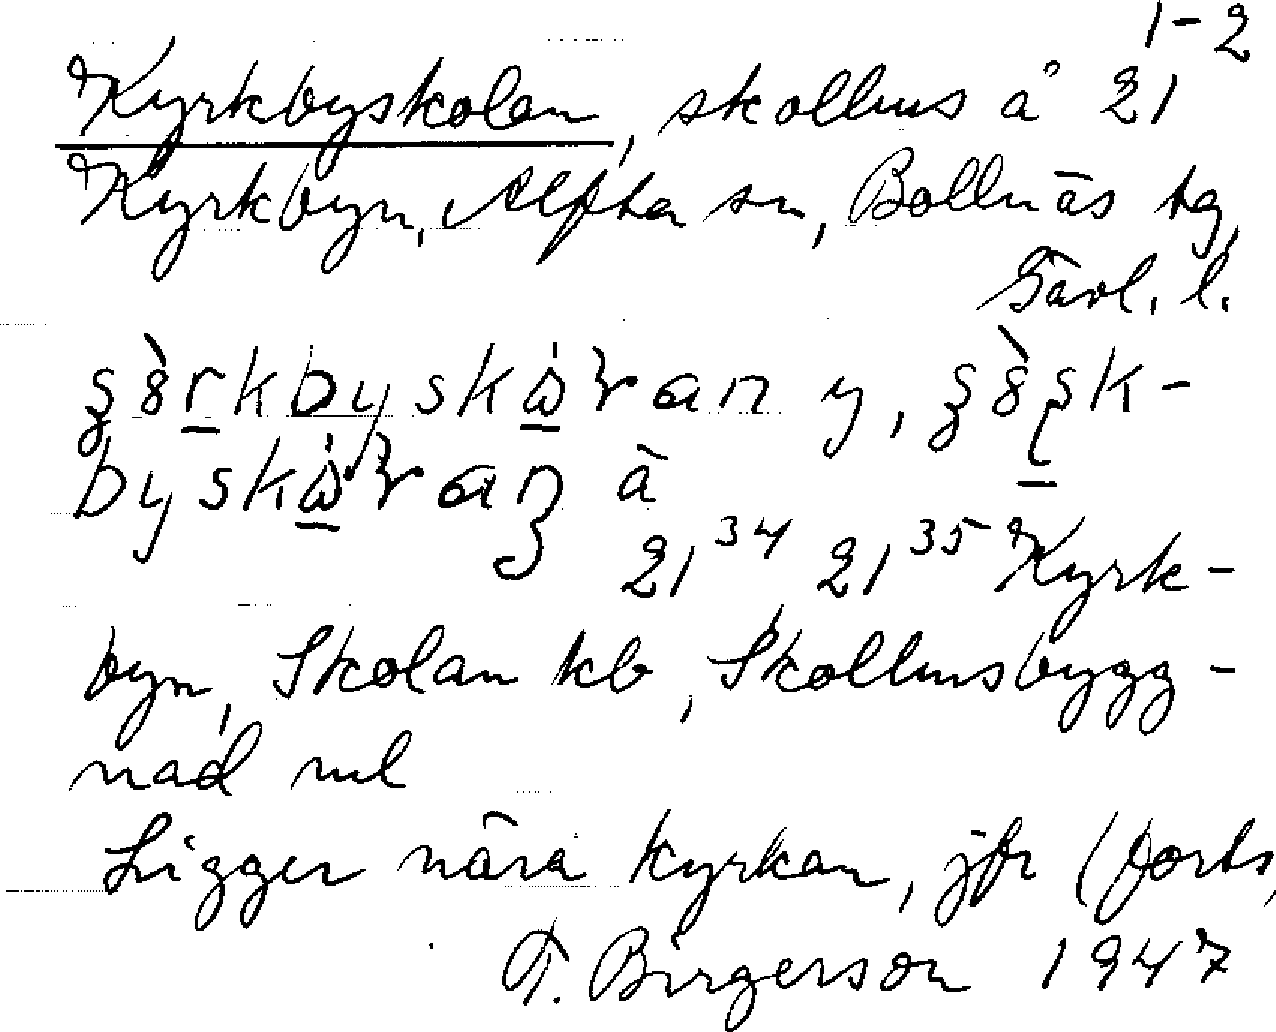 1-2
Kyrkbyskolan, skolhus å 21
Kyrkbyn, Alfta sn, Bollnäs tg,
Gävl. l.
y,
ä
21 34 21 35 Kyrk-
byn, Skolan kb, Skolhusbygg-
nad ml
Ligger nära kyrkan, jfr (forts,
F. Birgerson 1947